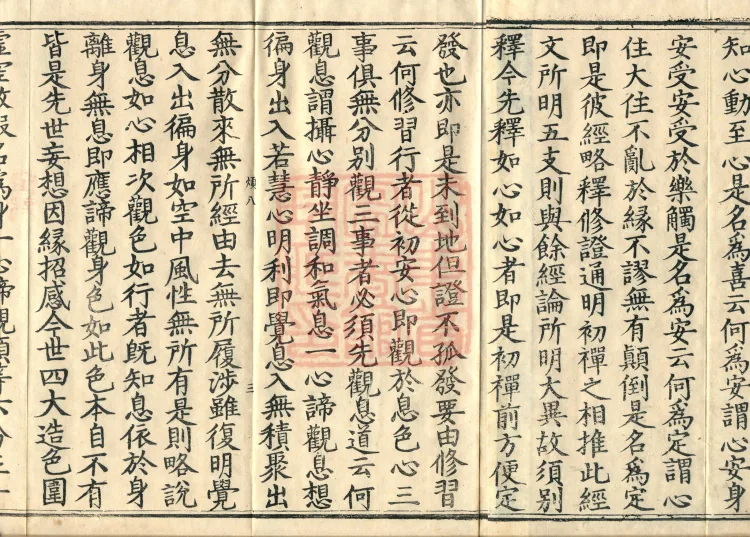 知心動至心是名為喜云何為安謂心安身
安受安受於樂觸是名為安云何為定謂心
住大住不亂於緣不謬無有顛倒是名為定
即是彼經略釋修證通明初禪之相推此經
文所明五支則與餘經論所明大異故須別
釋今先釋如心如心者即是初禪前方便定
發也亦即是未到地但證不孤發要由修習
云何修習行者從初安心即觀於息色心三
事俱無分別觀三事者必須先觀息道云何
觀息謂攝心靜坐調和氣息一心諦觀息想
徧身出入若慧心明利即覺息入無積聚出
煩八
三
無分散來無所經由去無所履涉雖復明覺
息入出徧身如空中風性無所有是則略說
觀息如心相次觀色如行者旣知息依於身
離身無息即應諦觀身色如此色本自不有
皆是先世妄想因緣招感今世四大造色圍